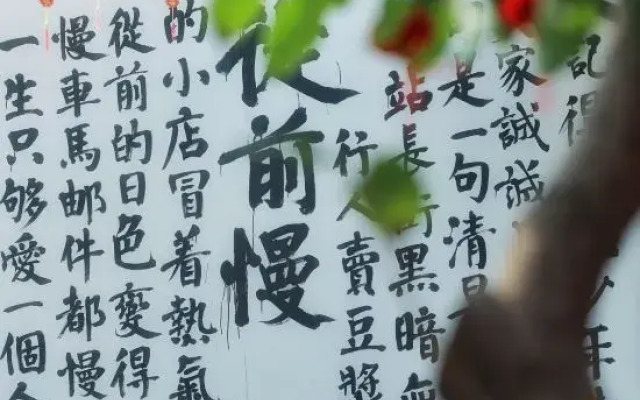 記得少年
家誠誠
是一句清早
站長街黑暗無
行人賣豆漿
從前慢
的小店冒着熱氣
從前的日色變得
慢車馬邮件都慢
一生只够愛一個人